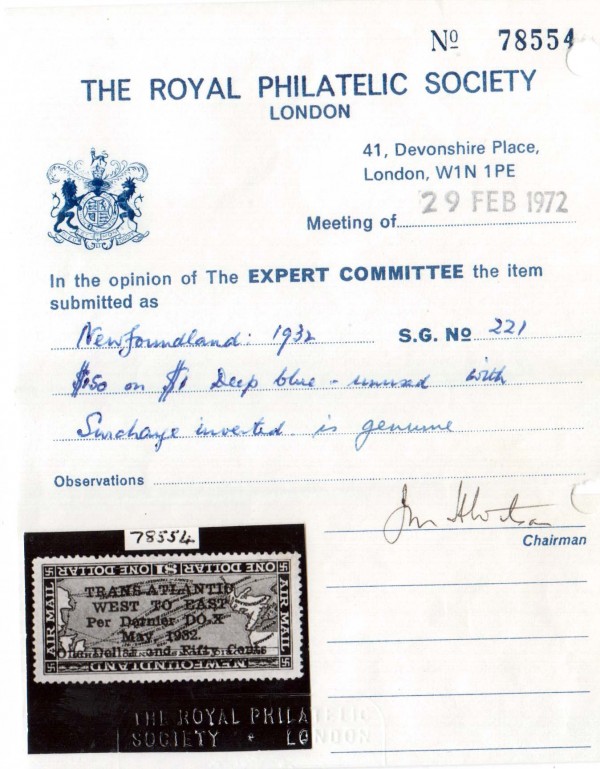 Nº 78554
THE ROYAL PHILATELIC SOCIETY
LONDON
41, Devonshire Place,
London, W1N 1PE
Meeting of 29 FEB 1972
In the opinion of The EXPERT COMMITTEE the item
submitted as
Newfoundland: 1932 S.G. Nº 221
$1.50 on $1 Deep blue - unused with
Surcharge inverted is genuine
Observations
Chairman
78554
ONE DOLLAR $1 ONE DOLLAR
AIR MAIL
AIR MAIL
TRANS-ATLANTIC
WEST TO EAST
Per Dornier DO.X
May, 1932.
One Dollar and Fifty Cents
NEWFOUNDLAND
THE ROYAL PHILATELIC
SOCIETY • LONDON